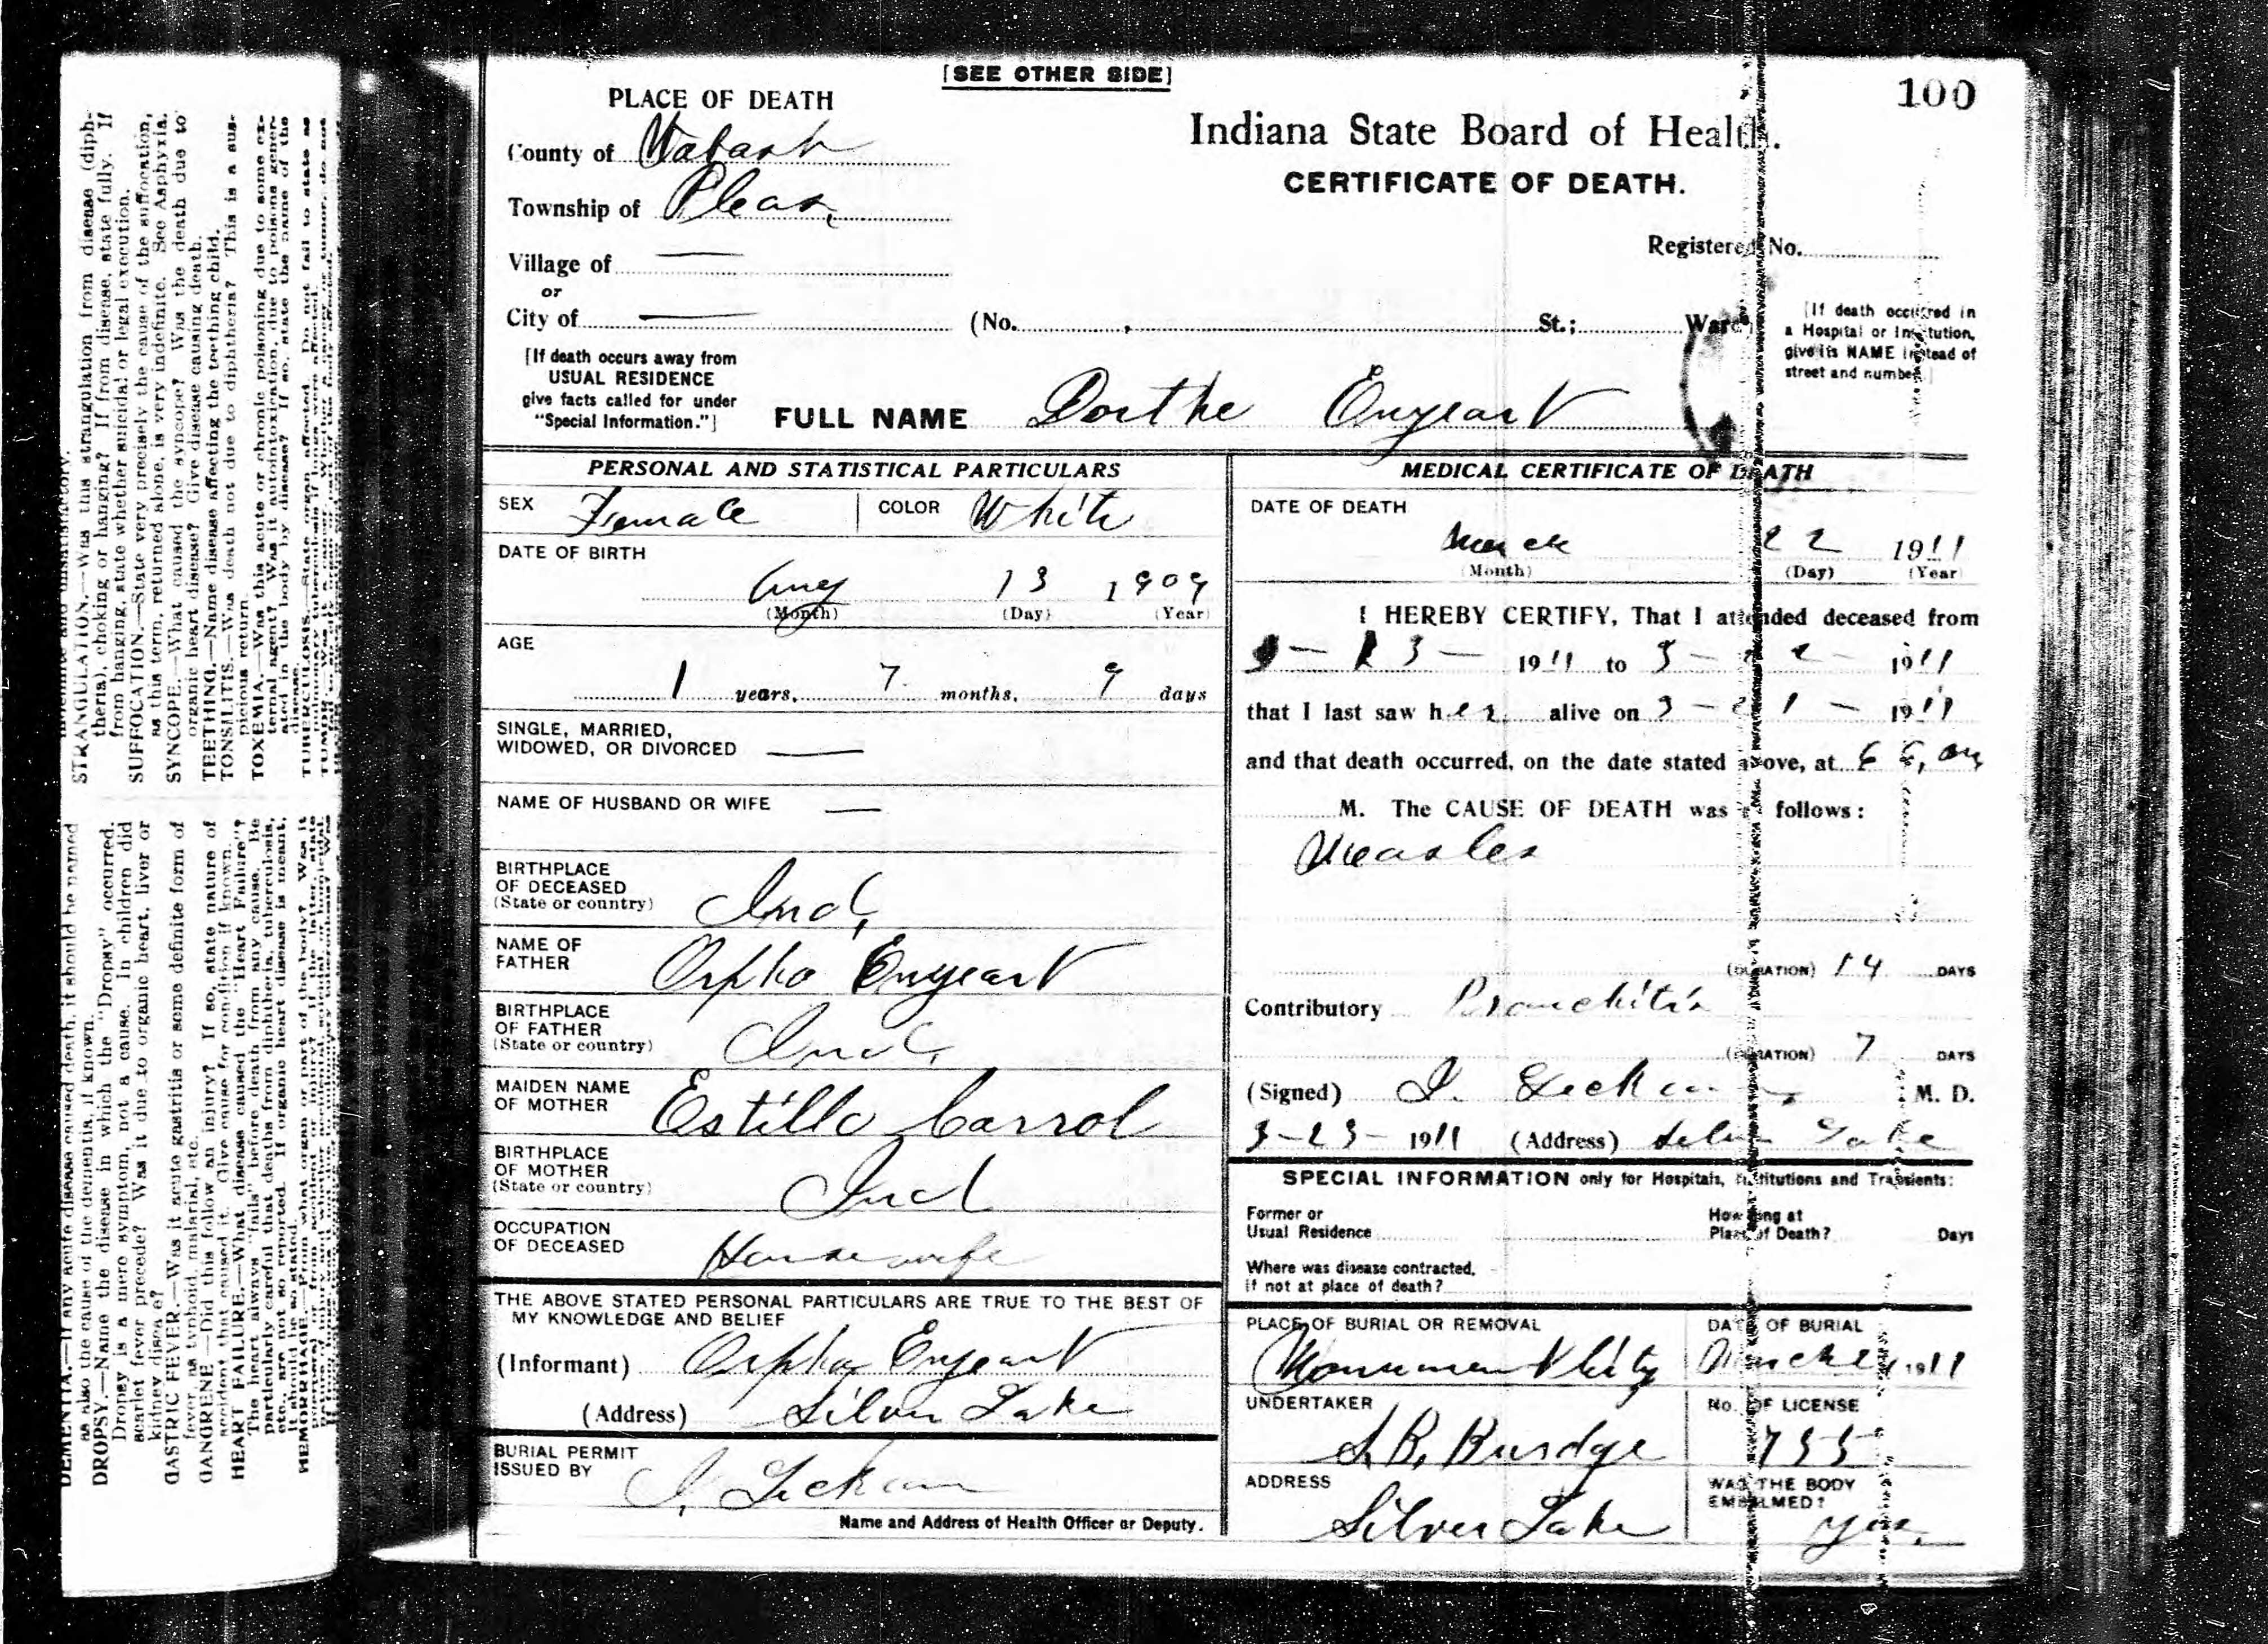 [SEE OTHER SIDE]
100
PLACE OF DEATH
County of Wabash
Township of Pleas.
Village of —
or
City of — (No. St.; Ward)
Indiana State Board of Health.
CERTIFICATE OF DEATH.
Registered No.
[If death occurred in
a Hospital or Institution,
give its NAME instead of
street and number.]
[If death occurs away from
USUAL RESIDENCE
give facts called for under
"Special Information."]
FULL NAME Dorthe Enyeart
PERSONAL AND STATISTICAL PARTICULARS
SEX Female COLOR White
DATE OF BIRTH
Aug 13 1909
(Month) (Day) (Year)
AGE
1 years, 7 months, 9 days
SINGLE, MARRIED,
WIDOWED, OR DIVORCED —
NAME OF HUSBAND OR WIFE —
BIRTHPLACE
OF DECEASED
(State or country) Ind,
NAME OF
FATHER Orpha Enyeart
BIRTHPLACE
OF FATHER
(State or country) Ind,
MAIDEN NAME
OF MOTHER Estillo Carrol
BIRTHPLACE
OF MOTHER
(State or country) Ind
OCCUPATION
OF DECEASED Housewife
THE ABOVE STATED PERSONAL PARTICULARS ARE TRUE TO THE BEST OF
MY KNOWLEDGE AND BELIEF
(Informant) Orpha Enyeart
(Address) Silver Lake
BURIAL PERMIT
ISSUED BY I. Leckam
Name and Address of Health Officer or Deputy.
MEDICAL CERTIFICATE OF DEATH
DATE OF DEATH
March 22 1911
(Month) (Day) (Year)
I HEREBY CERTIFY, That I attended deceased from
3 - 13 - 1911 to 3 - 22 - 1911
that I last saw her alive on 3 - 21 - 1911
and that death occurred, on the date stated above, at
M. The CAUSE OF DEATH was as follows:
Measles
(DURATION) 14 DAYS
Contributory Bronchitis
(DURATION) 7 DAYS
(Signed) I. M. D.
3-23- 1911 (Address) Silver Lake
SPECIAL INFORMATION only for Hospitals, Institutions and Transients:
Former or
Usual Residence
How long at
Place of Death? Days
Where was disease contracted,
if not at place of death?
PLACE OF BURIAL OR REMOVAL
Monument City
DATE OF BURIAL
March 1911
UNDERTAKER
S. B. Burdge
No. OF LICENSE
755
ADDRESS
Silver Lake
WAS THE BODY
EMBALMED?
yes.
STRANGULATION.—Was this strangulation from disease (diph-
theria), choking or hanging? If from disease, state fully. If
from hanging, state whether suicidal or legal execution.
SUFFOCATION.—State very precisely the cause of the suffocation,
as this term, returned alone, is very indefinite. See Asphyxia.
SYNCOPE.—What caused the syncope? Was the death due to
organic heart disease? Give disease causing death.
TEETHING.—Name disease affecting the teething child.
TONSILITIS.—Was death not due to diphtheria? This is a sus-
picious return.
TOXEMIA.—Was this acute or chronic poisoning due to some ex-
ternal agent? Was it autointoxication, due to poisons gener-
ated in the body by disease? If so, state the name of the
disease.
TUBERCULOSIS.—State organ affected. Do not fail to state as
DEMENTIA.—If any acute disease caused death, it should be named
as also the cause of the dementia, if known.
DROPSY.—Name the disease in which the "Dropsy" occurred.
Dropsy is a mere symptom, not a cause. In children did
scarlet fever precede? Was it due to organic heart, liver or
kidney disease?
GASTRIC FEVER.—Was it acute gastritis or some definite form of
fever, as typhoid, malarial, etc.
GANGRENE.—Did this follow an injury? If so, state nature of
accident that caused it. Give cause for condition if known.
HEART FAILURE.—What disease caused the "Heart Failure"?
The heart always "fails" before death from any cause. Be
particularly careful that deaths from diphtheria, tuberculosis,
etc., are not so reported. If organic heart disease is meant,
it should be so stated.
HEMORRHAGE.—From what organ or part of the body? Was it